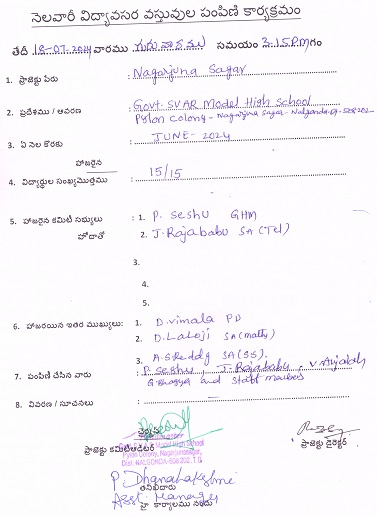 నెలవారీ విద్యావసర వస్తువుల పంపిణి కార్యక్రమం
తేదీ 18-07-2024 వారము గురువారము సమయం 3:15PM గం
1. ప్రాజెక్టు పేరు : Nagarjuna Sagar
2. ప్రదేశము / ఆవరణ : Govt. SVAR Model High School
Pylon Colony - Nagarjuna Sagar - Nalgonda Dt - 508202
3. ఏ నెల కొరకు : JUNE - 2024
హాజరైన
4. విద్యార్థుల సంఖ్య/మొత్తము : 15/15
5. హాజరైన కమిటి సభ్యులు : 1. P. Seshu GHM
హోదాతో 2. J. Rajababu SA (Tel)
3.
4.
5.
6. హాజరయిన ఇతర ముఖ్యులు: 1. D. Vimala PD
2. D. Laloji SA (maths)
3. A.S. Reddy SA (SS).
7. పంపిణి చేసిన వారు : P. Seshu, J. Rajababu, V.
G. Bhagya and staff members
8. వివరణ / సూచనలు :
ప్రాజెక్టు కమిటి ప్రాజెక్టు డైరెక్టర్
Model High School
Pylon Colony, Nagarjunasagar,
Dist. NALGONDA-508 202, T.S
P. Dhanalakshmi
తనిఖీదారు
Asst. Manager
హై కార్యాలము నందు